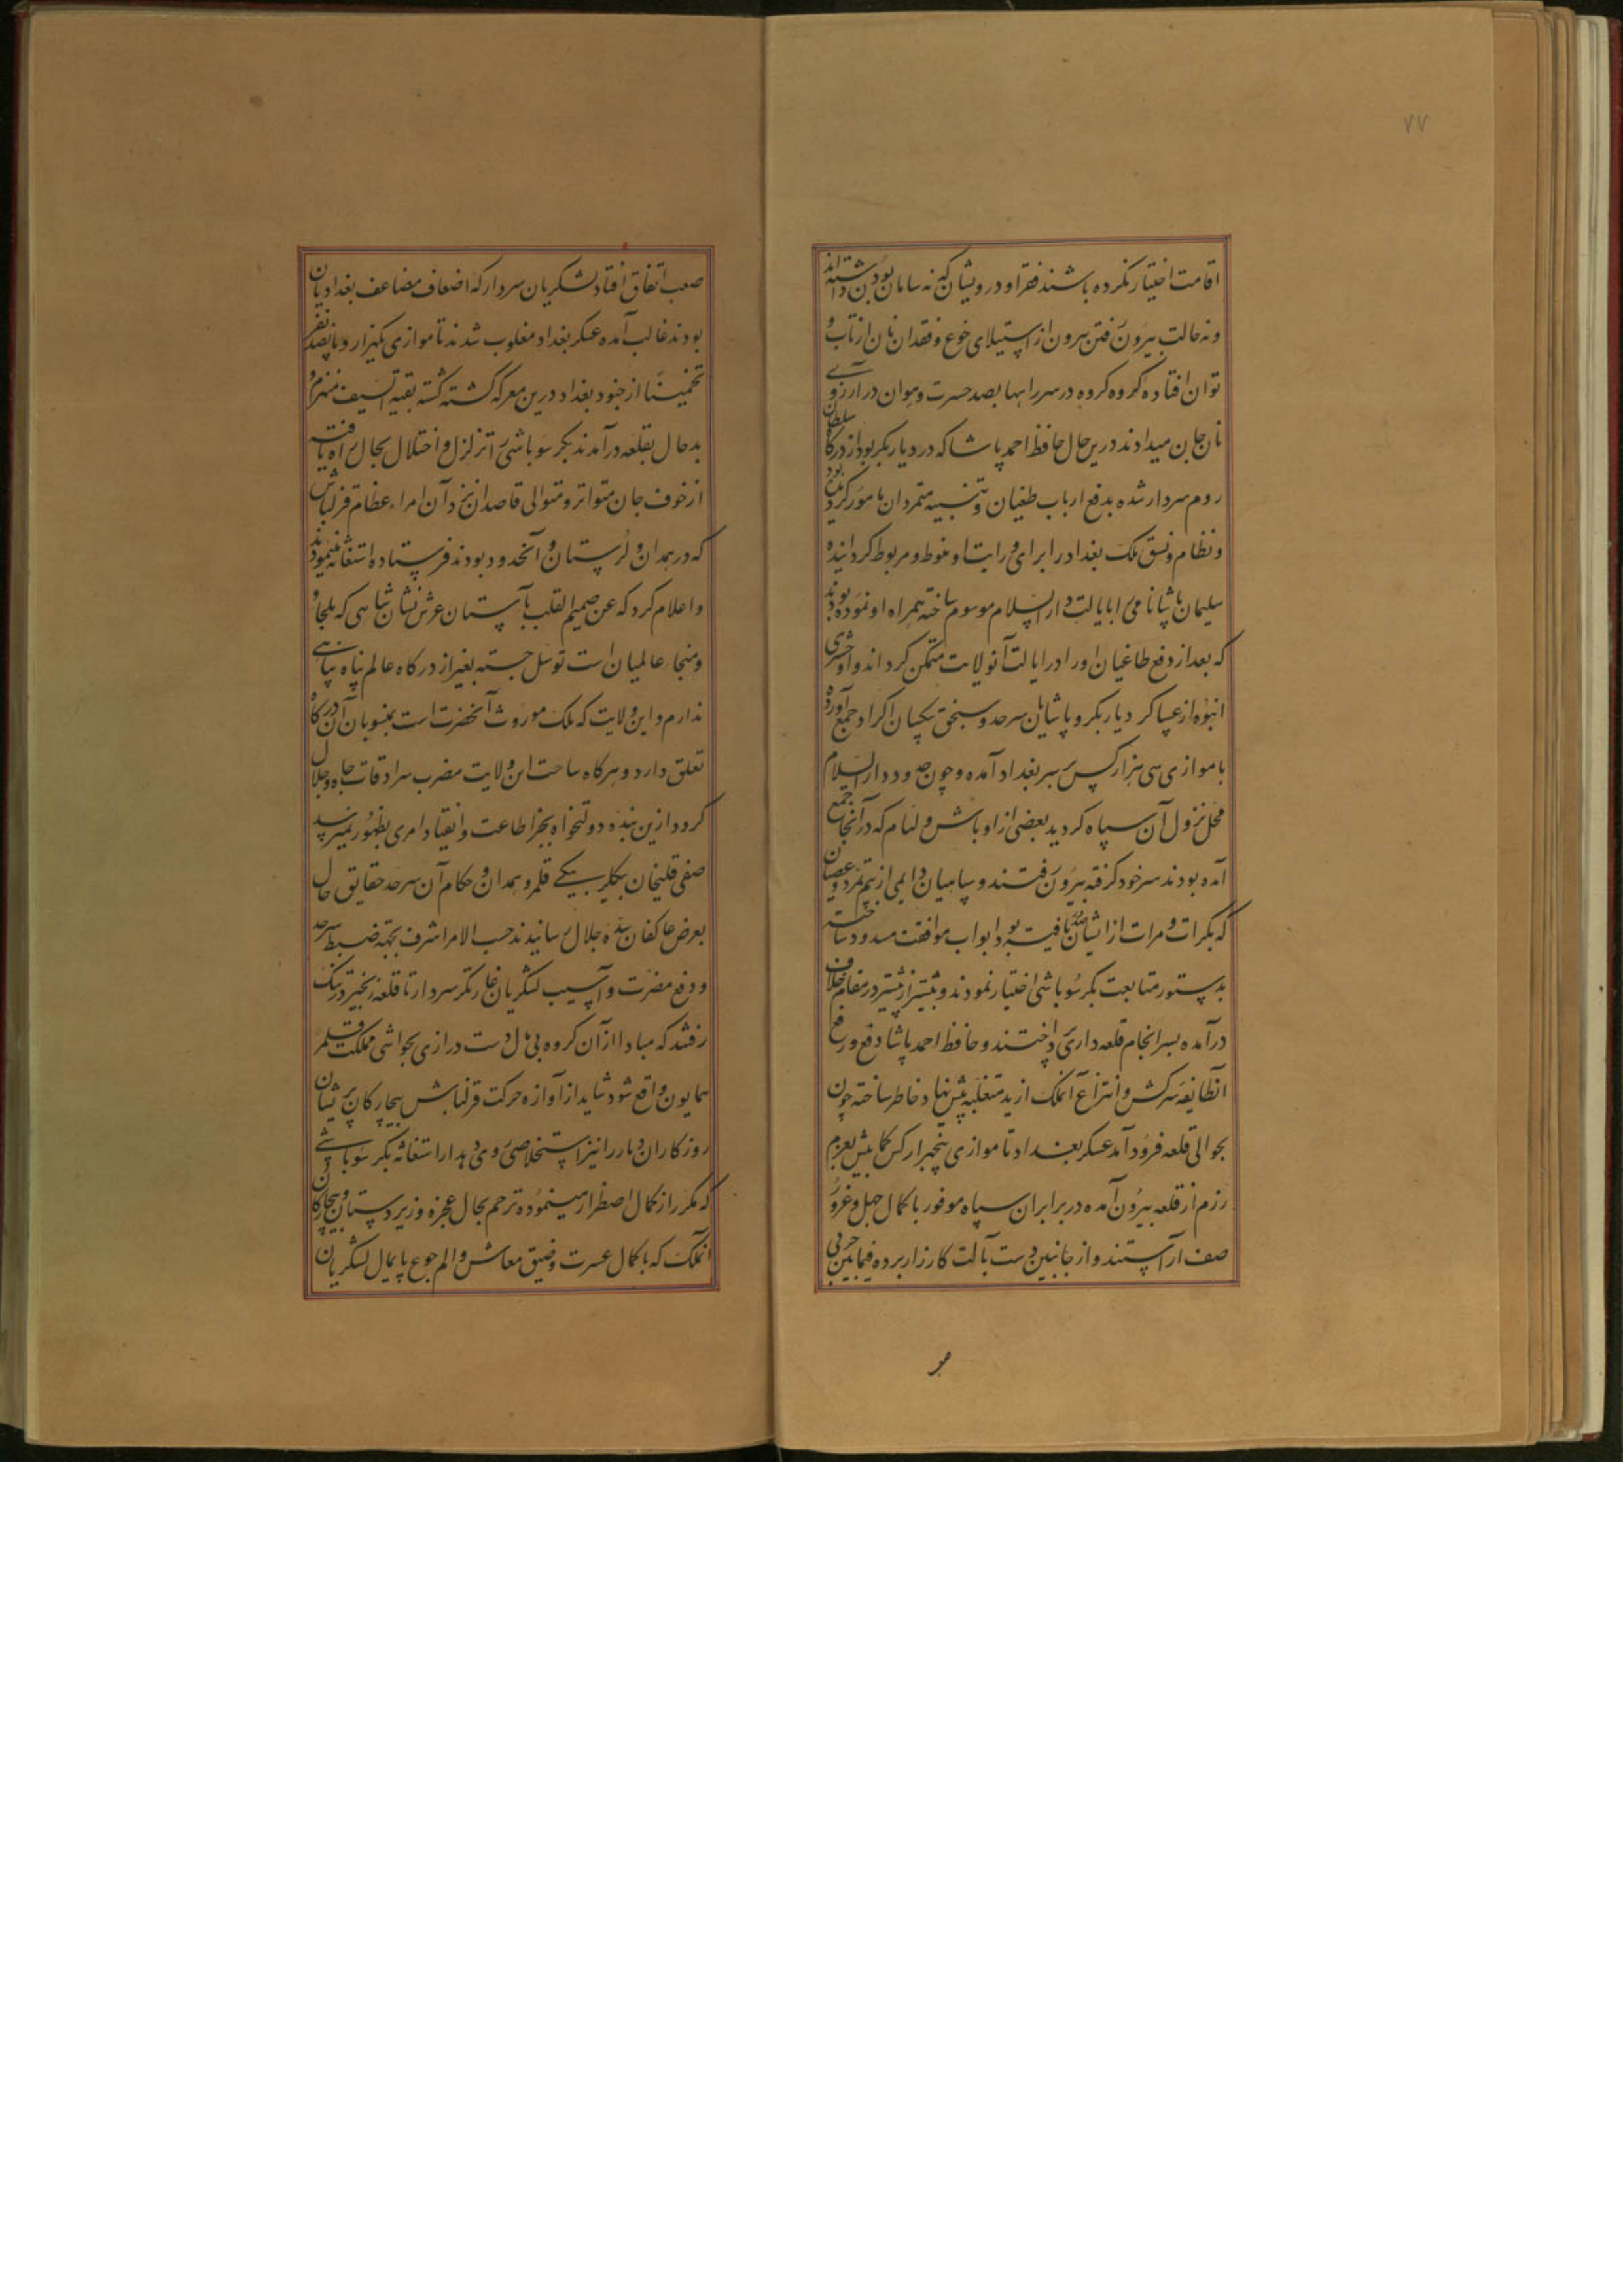 ۷۷
اقامت اختیار نکرده باشند فقرا و درویشان که نه سامان بودن داشته‌اند
و نه حالت بیرون رفتن برون از استیلای جوع و فقدان نان از تاب و
توان افتاده کروه کروه در سر راهها بصد حسرت و هوان در آرزوی
نان جان میدادند درین حال حافظ احمد پاشا که در دیار بکر بود از درکاه سلطان
روم سردار شده بدفع ارباب طغیان و تنبیه متمردان مامور کردیده بود
و نظام و نسق ملک بغداد را برای و رایت او منوط و مربوط کردانیده
سلیمان پاشا نامی را بایالت دار السلام موسوم ساخته همراه او نموده بودند
که بعد از دفع طاغیان او را در ایالت آنولایت متمکن کرداند و او حشری
انبوه از عساکر دیار بکر و پاشایان سرحد و سنجق بکیان اکراد جمع آورده
با موازی سی هزار کس بر سر بغداد آمده و چون حدود دار السلام
محل نزول آن سپاه کردید بعضی از اوباش و لئام که در آنجا جمع
آمده بودند سر خود کرفته بیرون رفتند و سپاهیان دایمی از بیم تمرد و عصیان
که بکرات و مرات از ایشان صدور یافته بود ابواب موافقت مسدود ساخته
بدستور متابعت بکر سوباشی اختیار نمودند و بیشتر از پیشتر در مقام خلاف
درآمده بسرانجام قلعه داری پرداختند و حافظ احمد پاشا دفع و رفع
آنطایفه سرکش و انتزاع آنملک از ید متغلبه پیش نهاد خاطر ساخته چون
بحوالی قلعه فرود آمد عسکر بغداد تا موازی پنجهزار کس کمابیش بعزم
رزم از قلعه بیرون آمده در برابر آن سپاه موفور با کمال جهل و غرور
صف آراستند و از جانبین دست بآلت کارزار برده فیمابین حربی
صعب
صعب اتفاق افتاد لشکریان سردار که اضعاف مضاعف بغدادیان
بودند غالب آمده عسکر بغداد مغلوب شدند تا موازی یکهزار و پانصد نفر
تخمیناً از جنود بغداد درین معرکه کشته کشته بقیة السیف منهزم و
بدحال بقلعه درآمدند بکر سوباشی را تزلزل و اختلال بحال راه یافته
از خوف جان متواتر و متوالی قاصدان نزد آن امراء عظام قزلباش
که در همدان و لرستان و آنحدود بودند فرستاده استغاثه مینمودند
و اعلام کرد که عن صمیم القلب بآستان عرش نشان شاهی که ملجأ و
ومنجاء عالمیان است توسل جسته بغیر از درکاه عالم پناه پناهی
ندارم و این ولایت که ملک موروث آنحضرت است بمنسوبان آن درکاه
تعلق دارد و هرکاه ساحت این ولایت مضرب سرادقات جاه و جلال
کردد ازین بنده دولتخواه بجز اطاعت و انقیاد امری بظهور نمیرسد
صفی قلیخان بیکلر بیکی قلمرو همدان و حکام آن سرحد حقایق حال
بعرض عاکفان سده جلال رسانیدند حسب الامر اشرف بجهة ضبط سرحد
و دفع مضرت و آسیب لشکریان غارتکر سردار تا قلعه زنجیر و درتنک
رفتند که مبادا از آن کروه بی مآل دست درازی بحواشی مملکت قلمرو
همایون واقع شود شاید از آوازه حرکت قزلباش بیچارکان پریشان
روزکار آن دیار را نیز استخلاصی روی دهد از استغاثه بکر سوباشی
که مکرر از کمال اضطرار مینموده ترحم بحال عجزه و زیردستان و بیچارکان
آنملک که با کمال عسرت و ضیق معاش و الم جوع پایمال لشکریان